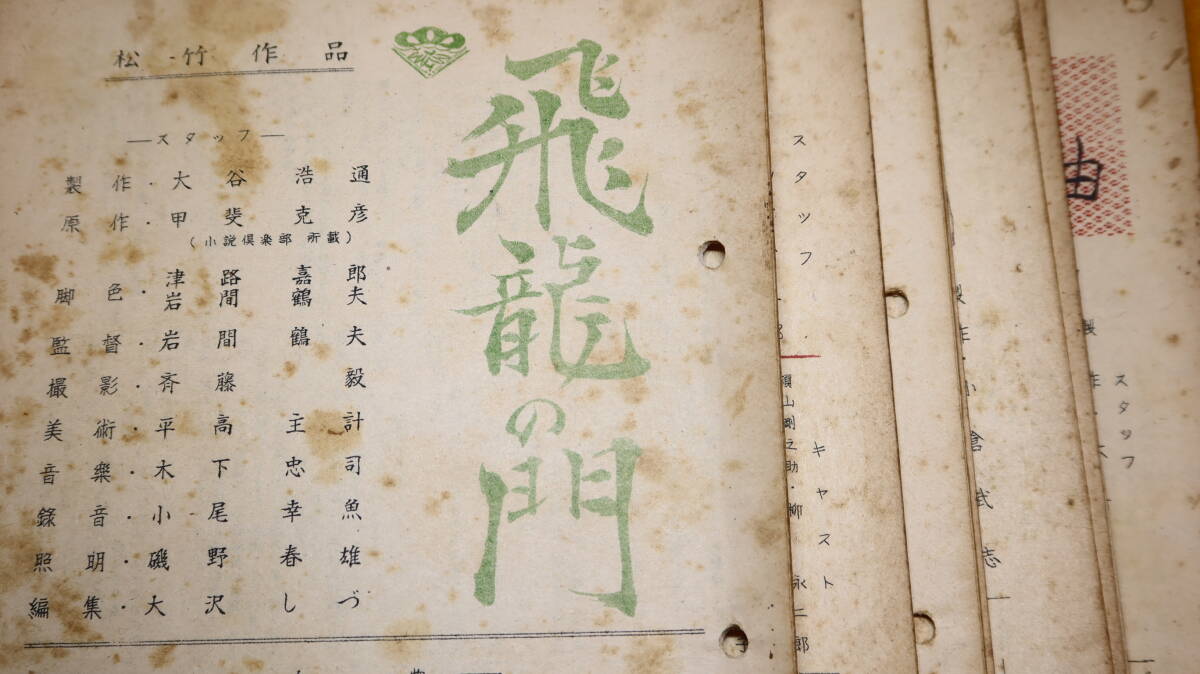 松竹作品
飛龍の門
―スタッフ―
製作・大谷浩通
原作・甲斐克彦
(小説倶楽部 所載)
脚色・津路嘉郎
岩間鶴夫
監督・岩間鶴夫
撮影・斉藤毅
美術・平高主計
音楽・木下忠司
録音・小尾幸魚
照明・磯野春雄
編集・大沢しづ
スタッフ
キャスト
須山剛之助・柳永二郎
製作・小倉武志
スタッフ
製作・大
由